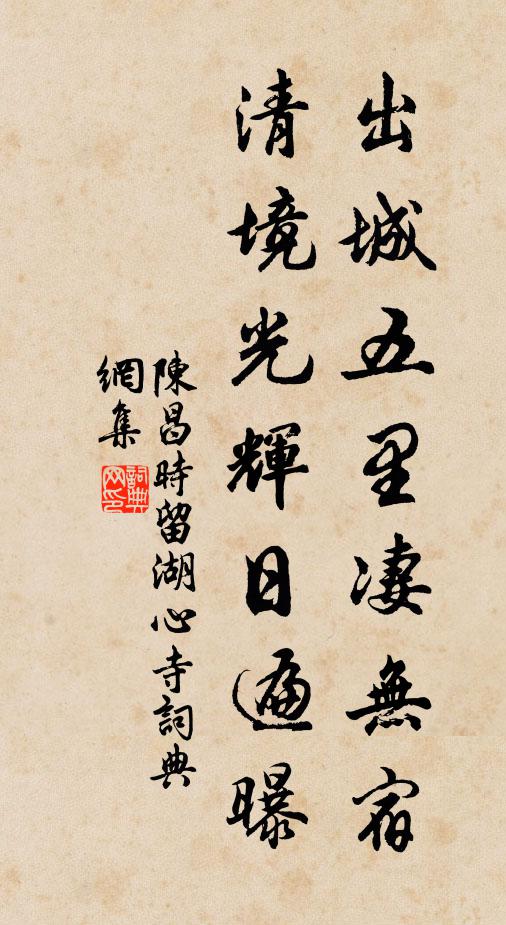 出城五里淒無宿
清境光輝日遍曝
陳昌時留湖心寺詞典
網集
詞典
网印